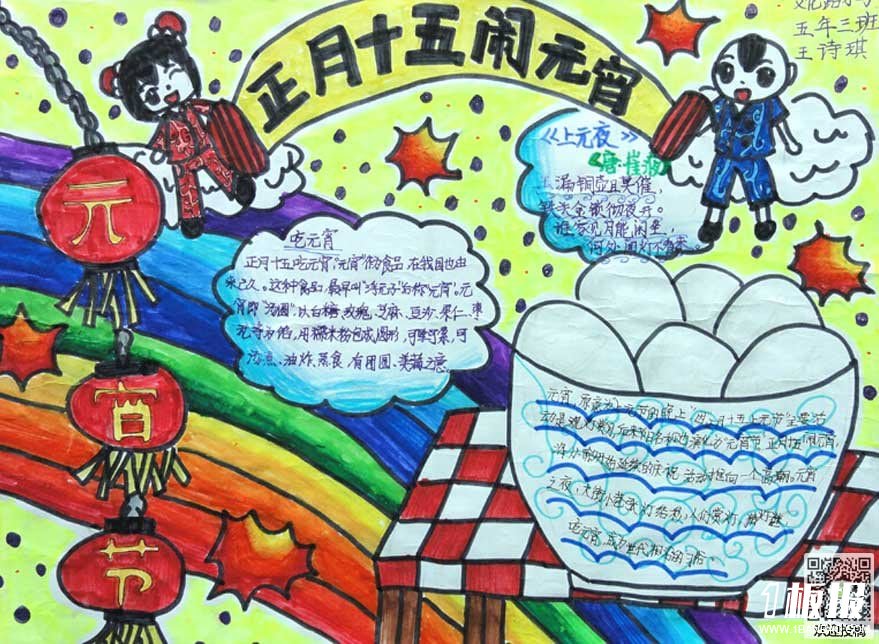 正月十五闹元宵
五年三班
王诗琪
元
宵
节
《上元夜》
唐·崔液
玉漏铜壶且莫催,
铁关金锁彻夜开。
谁家见月能闲坐,
何处闻灯不看来。
吃元宵
正月十五吃元宵,"元宵"作为食品,在我国也由
来已久。这种食品,最早叫"浮元子"后称"元宵"。元
宵即"汤圆",以白糖、玫瑰、芝麻、豆沙、果仁、枣
泥等为馅,用糯米粉包成圆形,可荤可素,可
汤煮、油炸、蒸食,有团圆、美满之意。
元宵 原意为"上元节的晚上"因正月十五"上元节"主要活
动是观灯赏月,后来节日名称也演化为"元宵节"正月十五闹元宵,
活动推向一个高潮。元宵
之夜,大街小巷张灯结彩,人们赏灯,猜灯谜,
吃元宵,成为世代相沿的习俗